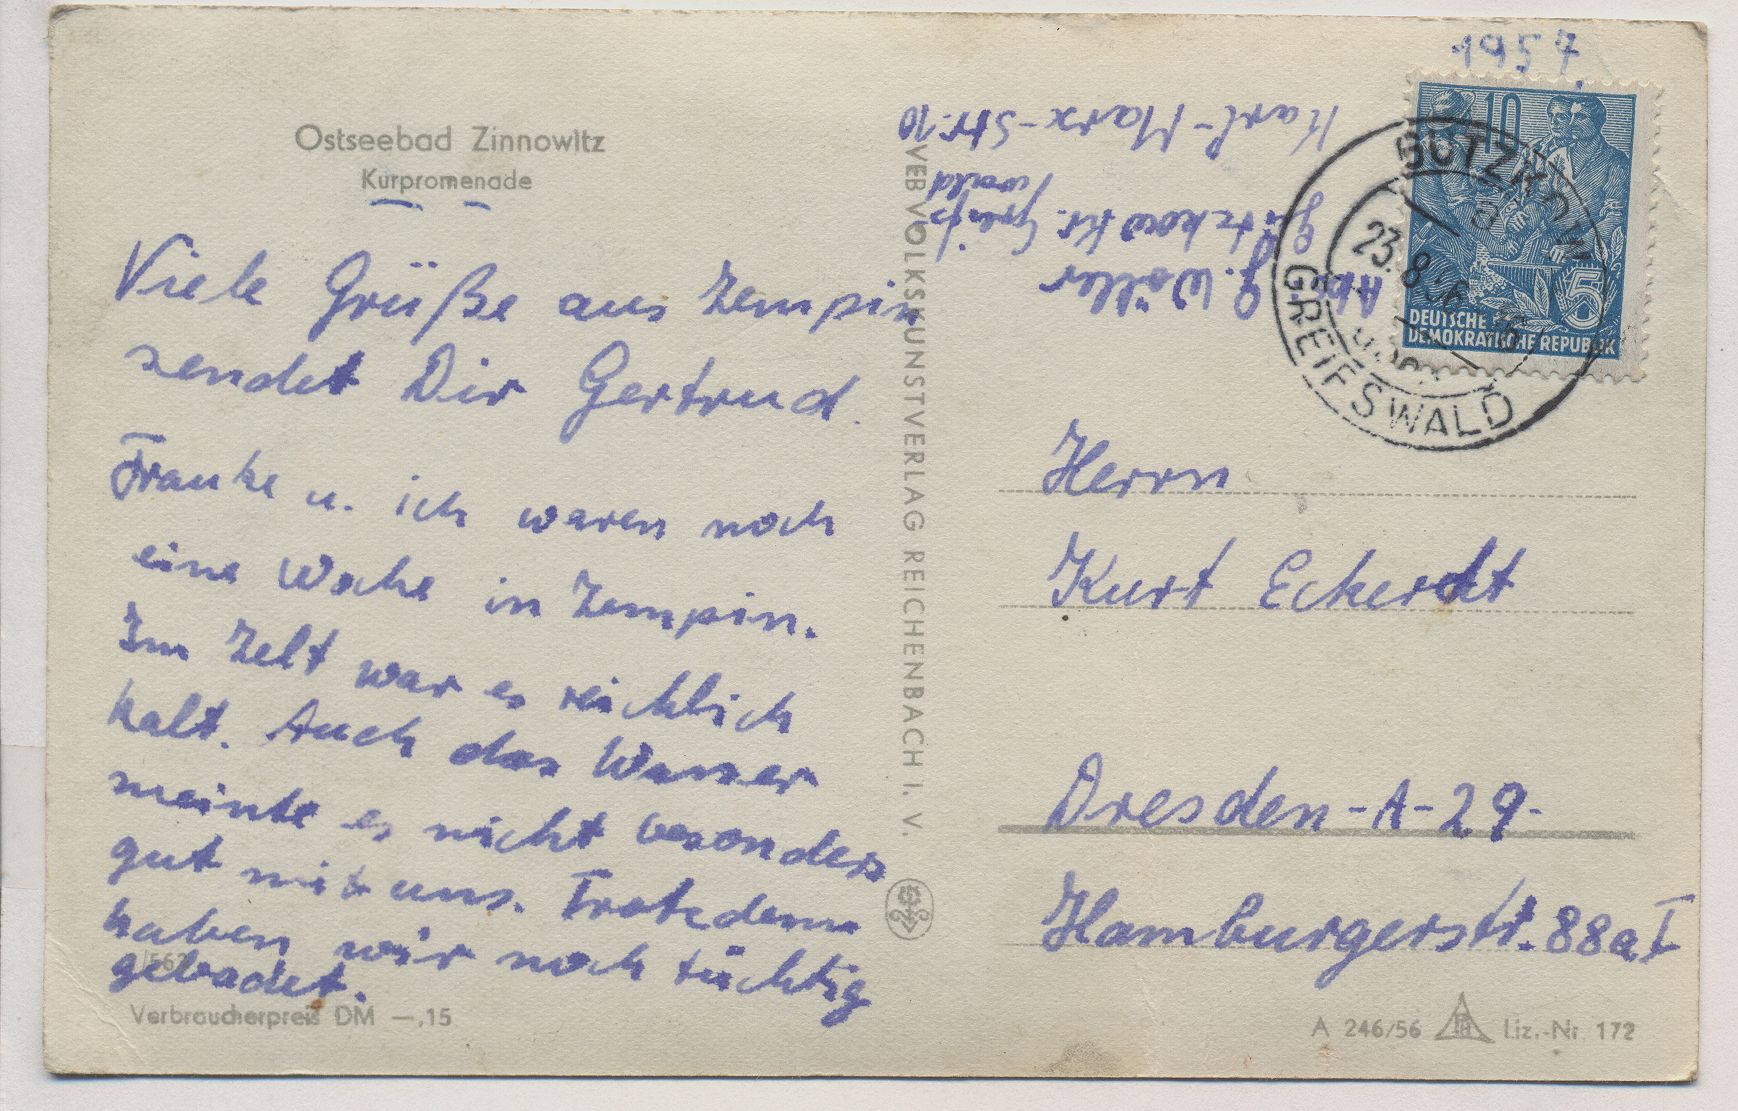 Ostseebad Zinnowitz
Kurpromenade
Viele Grüße aus Zempin
sendet Dir Gertrud.
Frauke u. ich waren noch
eine Woche in Zempin.
Im Zelt war es reichlich
kalt. Auch das Wasser
meinte es nicht besonders
gut mit uns. Trotzdem
haben wir noch tüchtig
gebadet.
Verbraucherpreis DM —,15
VEB VOLKSKUNSTVERLAG REICHENBACH I. V.
1957
Ab G. Wöller
Gützkow Kr. Greifs
wald
Karl-Marx-Str. 10
10
5
DEUTSCHE
DEMOKRATISCHE REPUBLIK
GÜTZKOW
23.8.
GREIFSWALD
Herrn
Kurt Eckerdt
Dresden-A-29-
Hamburgerstr. 88a I
A 246/56 Liz.-Nr. 172